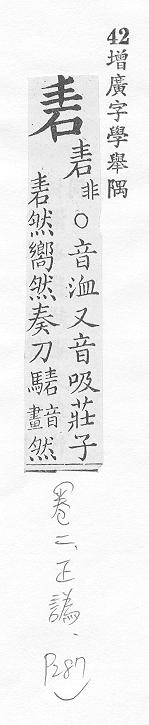 42增廣字學舉隅
砉
砉非○音洫又音吸莊子
砉然嚮然奏刀騞音畫然
(卷二、正譌、P287)